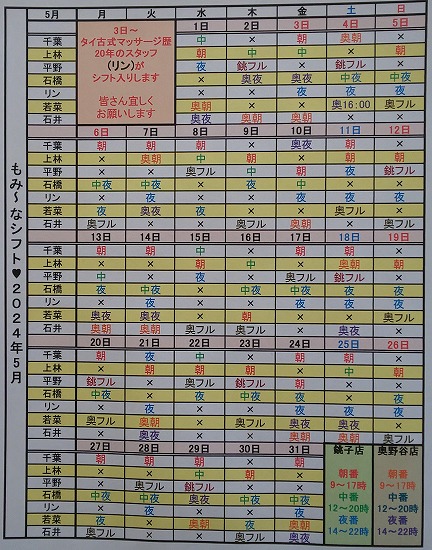 5月 月 火 水 木 金 土 日
3日~
タイ古式マッサージ歴
20年のスタッフ
(リン)が
シフト入りします
皆さん宜しく
お願いします
1日 2日 3日 4日 5日
千葉 中 × 朝 奥朝 ×
上林 朝 中 中 朝 朝
平野 × 銚フル × 銚フル ×
石橋 × 奥夜 奥夜 中夜 中夜
リン × × 夜 夜 夜
若菜 奥朝 × × 奥16:00 奥フル
石井 奥夜 奥朝 奥朝 × ×
6日 7日 8日 9日 10日 11日 12日
千葉 朝 朝 朝 朝 奥朝 × ×
上林 × 奥朝 中 朝 × 朝 朝
平野 × × 奥フル × 中 夜 銚フル
石橋 中夜 中夜 × 中夜 夜 中 ×
リン × 夜 夜 × 夜 夜 夜
若菜 夜 奥夜 夜 × × 奥フル ×
石井 奥フル × × 奥フル 奥朝 × 奥フル
13日 14日 15日 16日 17日 18日 19日
千葉 朝 朝 中 × 朝 × ×
上林 × × 朝 中 × 奥朝 朝
平野 中 × 奥フル × 奥フル 銚フル ×
石橋 夜 中夜 × 中夜 中夜 × 中夜
リン × 夜 × × 夜 夜 夜
若菜 奥フル 奥夜 × 朝 × × 奥フル
石井 奥朝 奥朝 奥フル × × 奥夜 ×
20日 21日 22日 23日 24日 25日 26日
千葉 × 夜 中 × 朝 × ×
上林 × 朝 朝 × 朝 中 朝
平野 銚フル × 奥朝 銚フル 朝 × ×
石橋 中夜 × 中夜 中夜 × 夜 中夜
リン × × 夜 × 夜 夜 夜
若菜 奥フル 奥朝 × 奥フル × 奥フル ×
石井 × 奥夜 × × 奥朝 奥朝 奥フル
27日 28日 29日 30日 31日
千葉 朝 朝 朝 × ×
上林 × 中 × 朝 朝
平野 × 奥フル 銚フル × ×
石橋 中夜 中夜 奥夜 中夜 中夜
リン × 夜 × × 夜
若菜 夜 × 奥朝 奥夜 奥朝
石井 奥フル × × 奥フル 奥夜
銚子店
朝番
9~17時
中番
12~20時
夜番
14~22時
奥野谷店
朝番
9~17時
中番
12~20時
夜番
14~22時
もみ~なシフト♥2024年5月